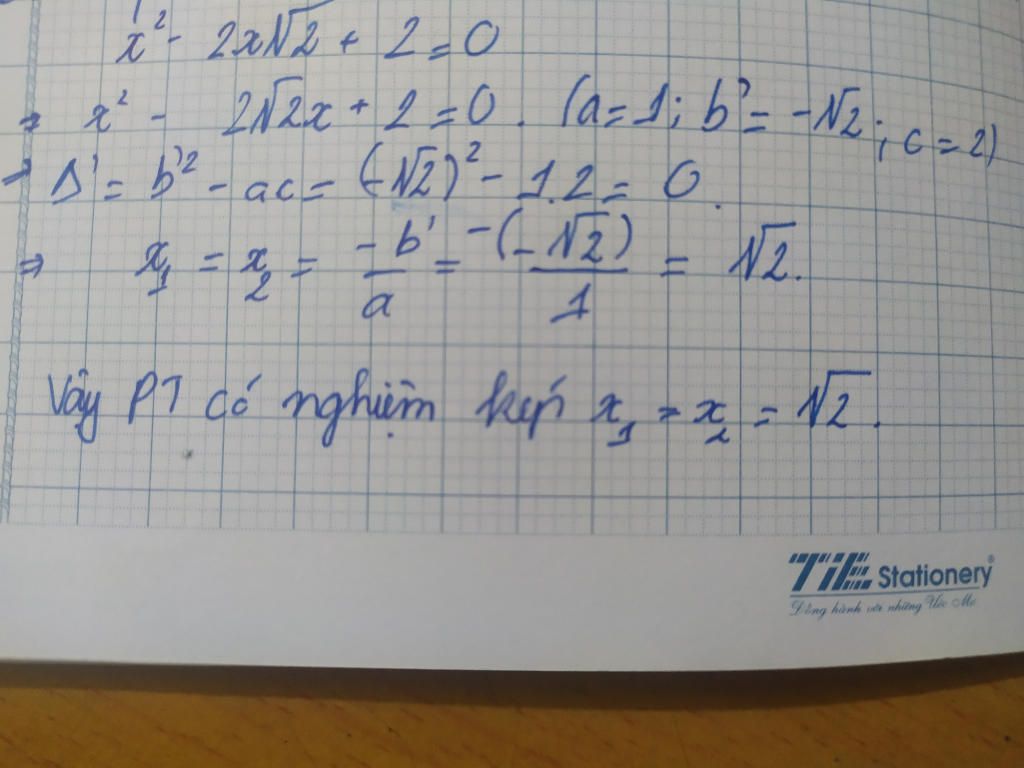 x² - 2x√2 + 2 = 0
⇒ x² - 2√2x + 2 = 0. (a = 1; b' = -√2; c = 2)
→ Δ' = b'² - ac = (-√2)² - 1.2 = 0.
⇒ x₁ = x₂ = -b'/a = -(-√2)/1 = √2.
Vậy PT có nghiệm kép x₁ = x₂ = √2.
TiE Stationery®
Đồng hành với những Ước Mơ